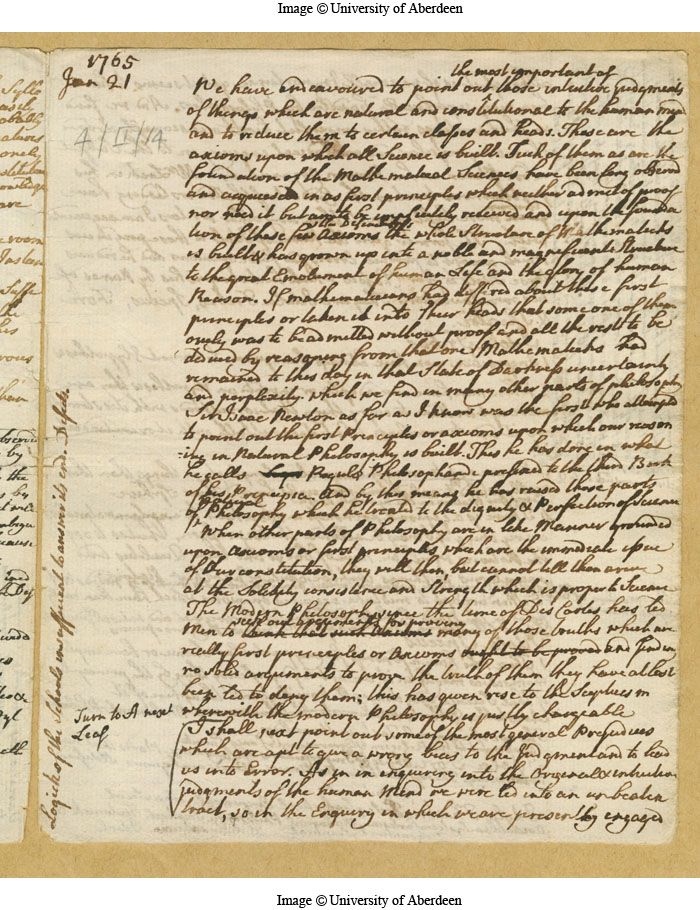 Image © University of Aberdeen
1765
Jan 21
4/II/14
the most important of
We have endeavoured to point out those intuitive judgments
of things which are natural and constitutional to the human mind
and to reduce them to certain classes and heads. These are the
axioms upon which all Science is built. Such of them as are the
foundation of the Mathematical Sciences have been long observed
and acquiesced in as first principles which neither admit of proof
nor need it but are to be immediately received and upon the founda
tion of these few Axioms the whole Structure of Mathematicks
is built & has grown up into a noble and magnificent Structure
to the great Emolument of human Life and the glory of human
Reason. If mathematicians had differd about these first
principles or taken it into their heads that some one of them
onely was to be admitted without proof and all the rest to be
deduced by reasoning from that one Mathematicks had
remained to this day in that State of Darkness uncertainty
and perplexity which we find in many other parts of philosophy
Sir Isaac Newton as far as I know was the first who attempted
to point out the first Principles or axioms upon which our reason
ing in Natural Philosophy is built. This he has done in what
he calls Regulæ Philosophandi prefixed to the third Book
of his Principia. And by this means he has raised those parts
of Philosophy which he located to the dignity & Perfection of Science
When other parts of Philosophy are in like Manner grounded
upon Axioms or first principles which are the immediate issue
of Our constitution, they will then, but cannot till then arrive
at the Solidity consistence and Strength which is proper to Science
The Modern Philosophy since the time of Des Cartes has led
Men to seek out arguments for proving
think that such Axioms many of those truths which are
really first principles or Axioms ought to be proved and finding
no Solid arguments to prove the truth of them they have at last
been led to deny them; this has given rise to the Scepticism
wherewith the modern Philosophy is justly chargeable
Turn to A next
Leaf
I shall next point out some of the most general Prejudices
which are apt to give a wrong bias to the Judgment and to lead
us into Error. As in in enquiring into the Original & intuitive
judgments of the human Mind we were led into an unbeaten
tract, so in the Enquiry in which we are presently engaged
Logick of the Schools insufficient to answer its end. Defects.
Image © University of Aberdeen